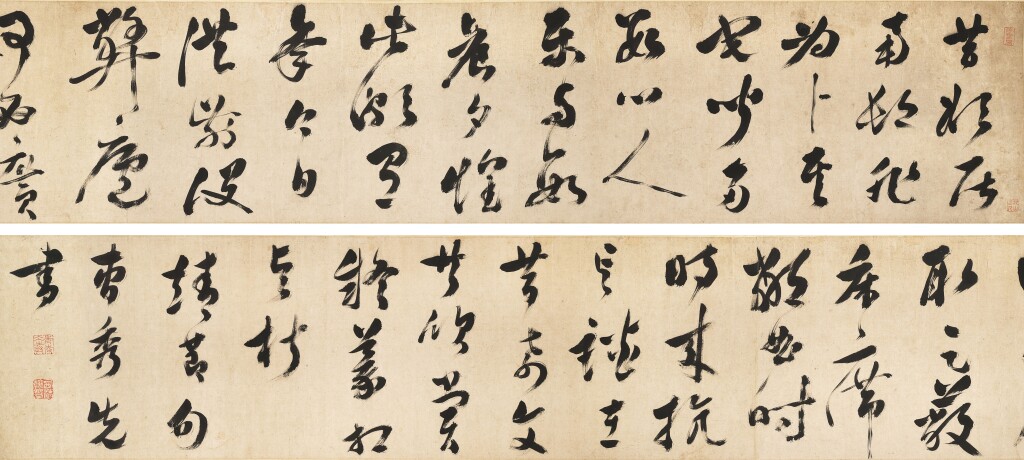 昔欲居
南邨非
為卜其
宅聞多
素心人
樂与數
晨夕懷
此頗有
年今日
從茲役
弊廬
何必廣
取足蔽
床席
鄰曲時
時來抗
言談在
昔奇文
共欣賞
疑義相
与析
靖節句
曹秀先
書